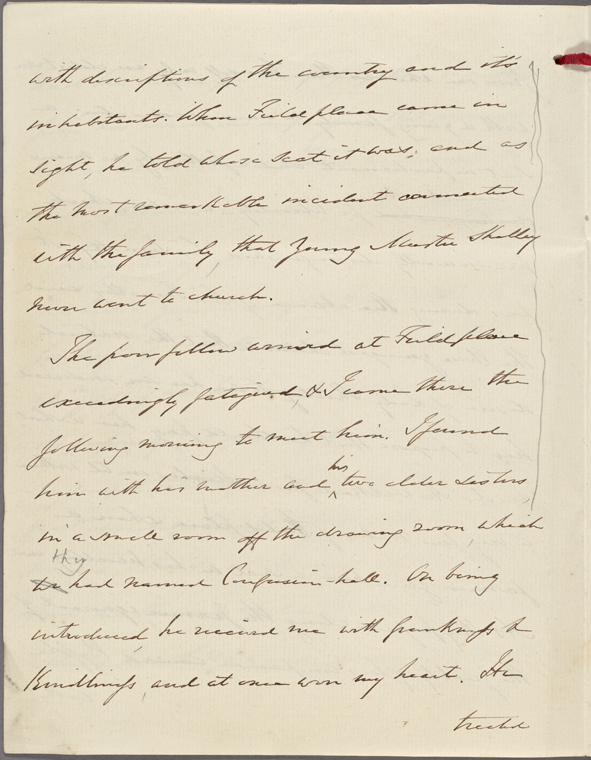 with descriptions of the country and it's
inhabitants. When Field place came in
sight, he told whose seat it was; and as
the most remarkable incident connected
with the family, that young Master Shelley
never went to church.
The poor fellow arrived at Field place
exceedingly fatigued & I came there the
following morning to meet him. I found
his
him with his mother and two elder sisters
in a small room off the drawing room, which
they
he had named Confusion-hall. On being
introduced, he received me with frankness &
Kindliness, and at once won my heart. He
treated